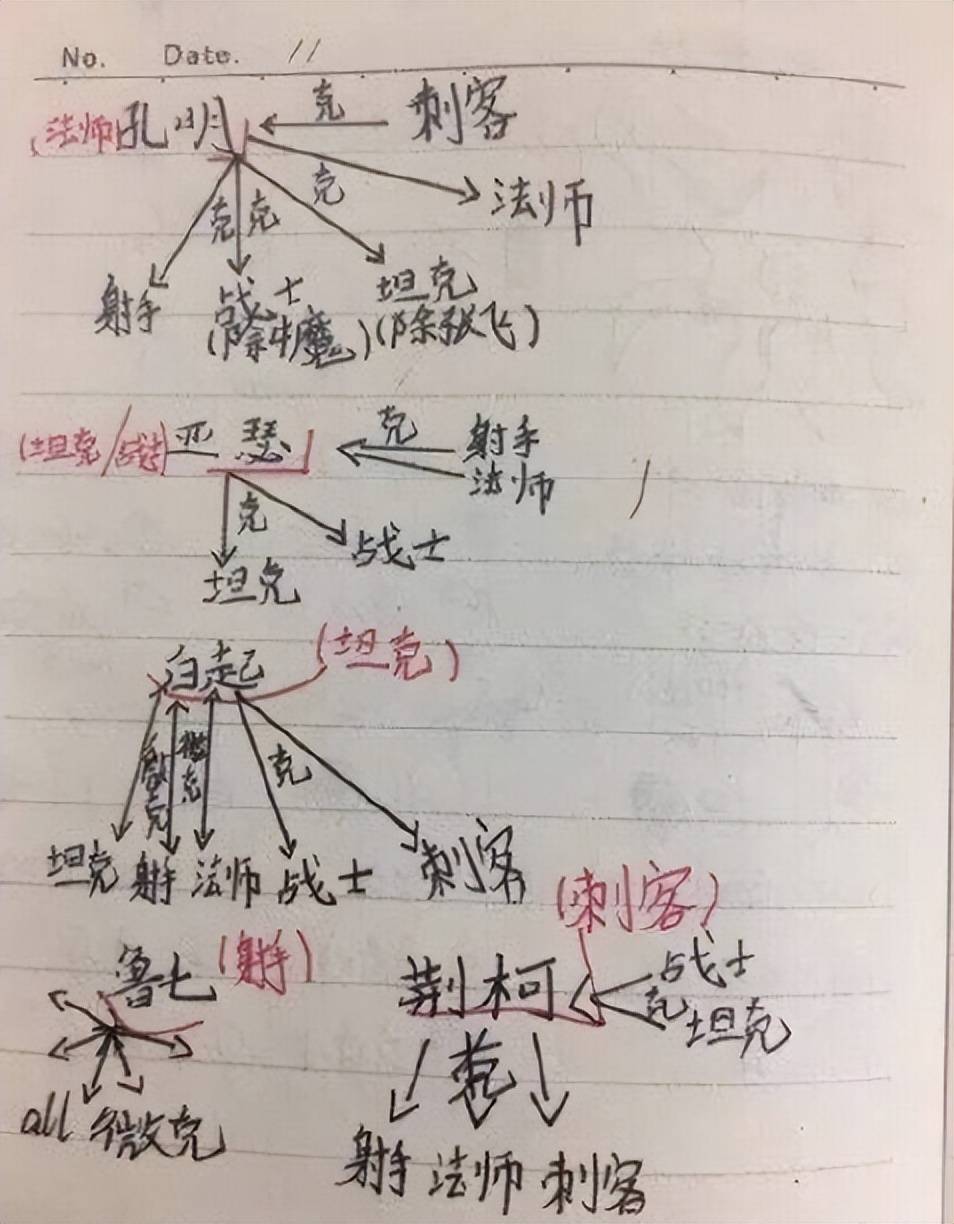 No. Date. //
(法师)孔明 克 刺客
克 克 克 法师
射手 战士 坦克
(除牛魔) (除张飞)
(坦克/战士) 亚瑟 克 射手
法师
克 战士
坦克
白起 (坦克)
微克 微克 克
坦克 射手 法师 战士 刺客
(刺客)
鲁七 (射手) 荆柯 克 战士
坦克
克
all 微克
射手 法师 刺客